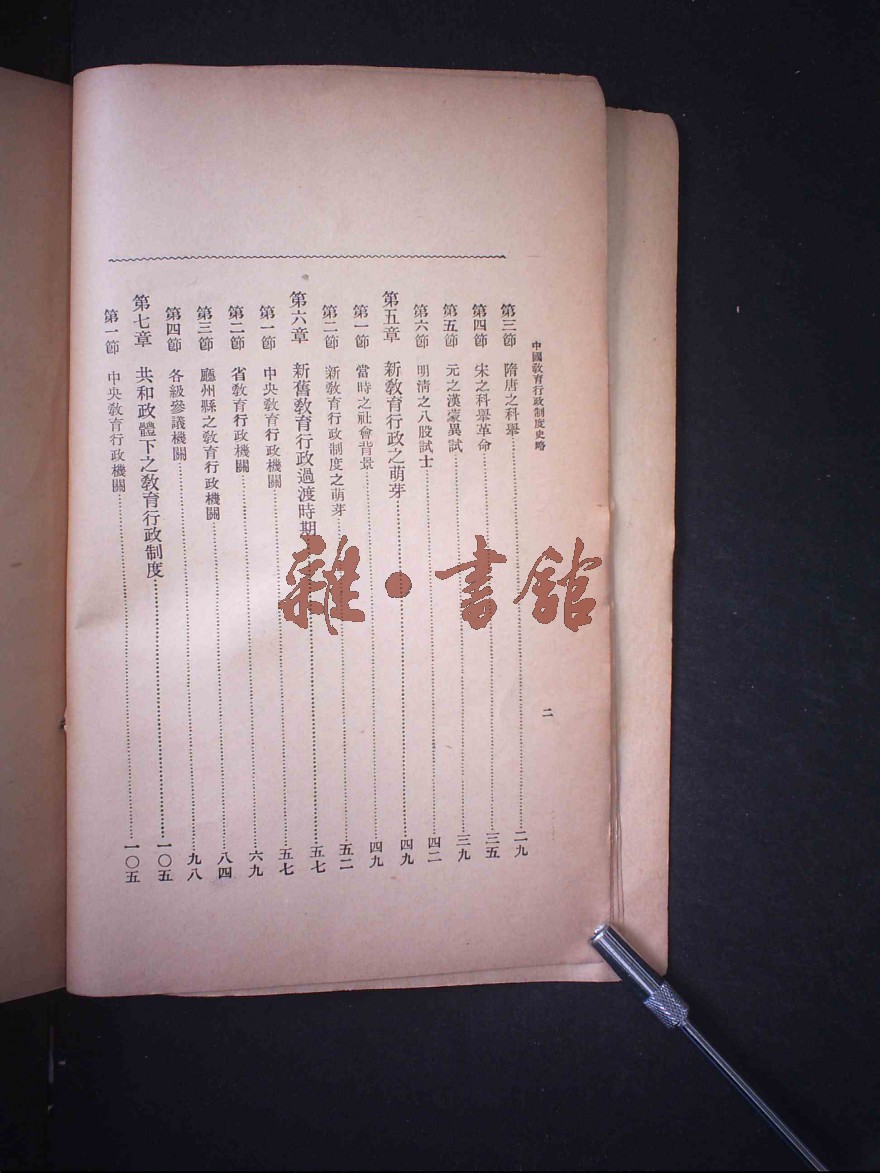 中國教育行政制度史略
二
第三節 隋唐之科舉……二九
第四節 宋之科舉革命……三五
第五節 元之漢蒙異試……三九
第六節 明清之八股試士……四二
第五章 新教育行政之萌芽……四九
第一節 當時之社會背景……四九
第二節 新教育行政制度之萌芽……五二
第六章 新舊教育行政過渡時期……五七
第一節 中央教育行政機關……五七
第二節 省教育行政機關……六九
第三節 廳州縣之教育行政機關……八四
第四節 各級參議機關……九八
第七章 共和政體下之教育行政制度……一〇五
第一節 中央教育行政機關……一〇五
雜·書館